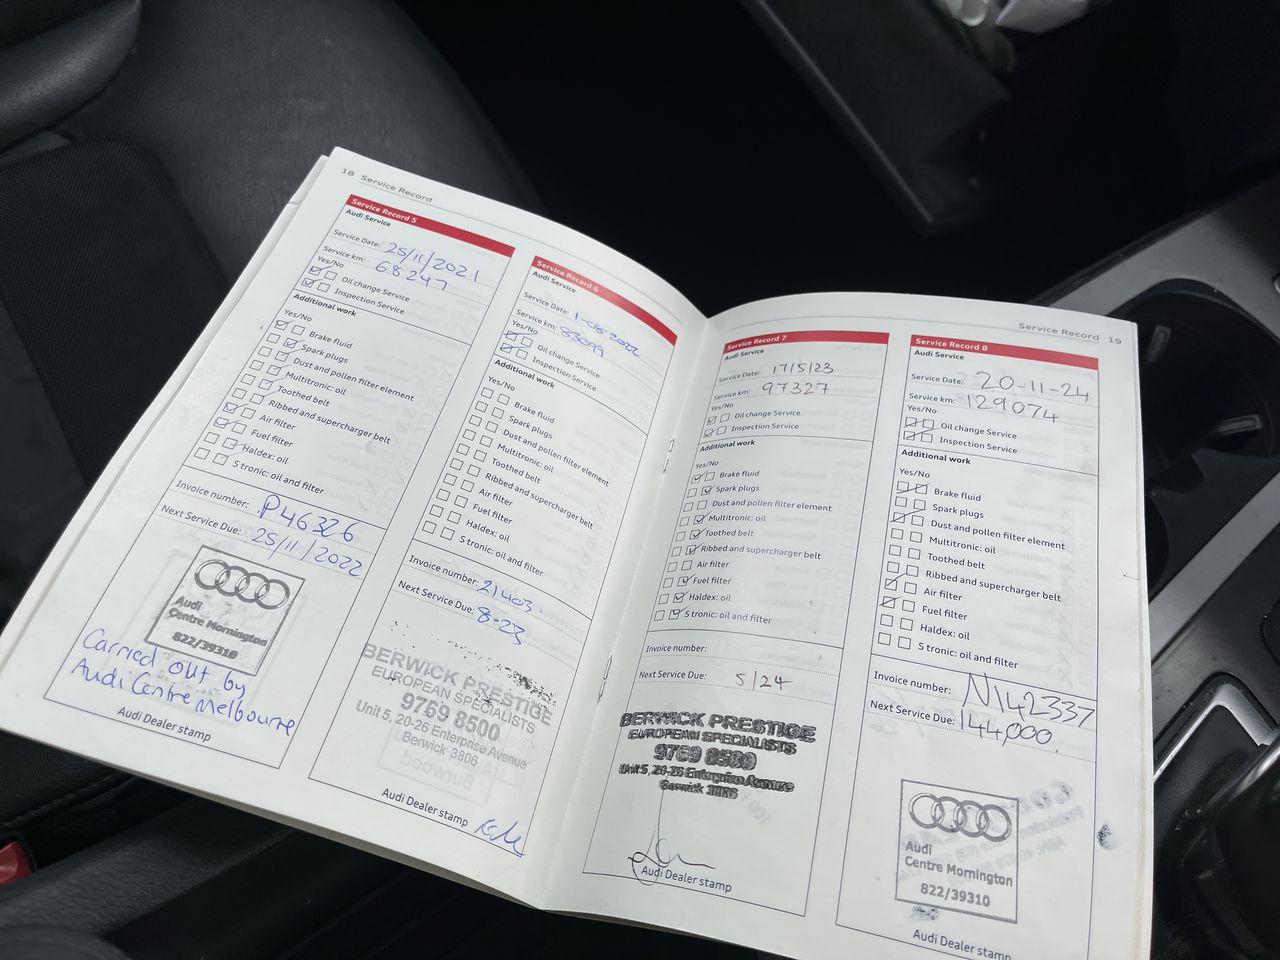 18 Service Record
Service Record 5
Audi Service
Service Date: 25/11/2021
Service km: 68247
Yes/No
Oil change Service
Inspection Service
Additional work
Yes/No
Brake fluid
Spark plugs
Dust and pollen filter element
Multitronic: oil
Toothed belt
Ribbed and supercharger belt
Air filter
Fuel filter
Haldex: oil
S tronic: oil and filter
Invoice number: P46326
Next Service Due: 25/11/2022
Audi
Centre Mornington
822/39310
Carried out by
Audi Centre Melbourne
Audi Dealer stamp
Service Record 6
Audi Service
Service Date:
Service km: 83099
Yes/No
Oil change Service
Inspection Service
Additional work
Yes/No
Brake fluid
Spark plugs
Dust and pollen filter element
Multitronic: oil
Toothed belt
Ribbed and supercharger belt
Air filter
Fuel filter
Haldex: oil
S tronic: oil and filter
Invoice number: 21403.
Next Service Due: 8-23
BERWICK PRESTIGE
EUROPEAN SPECIALISTS
9769 8500
Unit 5, 20-26 Enterprise Avenue
Berwick 3806
Burwood
Audi Dealer stamp
Service Record 19
Service Record 7
Audi Service
Service Date: 17/5/23
Service km: 97327
Yes/No
Oil change Service
Inspection Service
Additional work
Yes/No
Brake fluid
Spark plugs
Dust and pollen filter element
Multitronic: oil
Toothed belt
Ribbed and supercharger belt
Air filter
Fuel filter
Haldex: oil
S tronic: oil and filter
Invoice number:
Next Service Due: 5/24
BERWICK PRESTIGE
EUROPEAN SPECIALISTS
9769 8500
Unit 5, 20-26 Enterprise Avenue
Berwick 3806
Audi Dealer stamp
Service Record 8
Audi Service
Service Date: 20-11-24
Service km: 129074
Yes/No
Oil change Service
Inspection Service
Additional work
Yes/No
Brake fluid
Spark plugs
Dust and pollen filter element
Multitronic: oil
Toothed belt
Ribbed and supercharger belt
Air filter
Fuel filter
Haldex: oil
S tronic: oil and filter
Invoice number: N142337
Next Service Due: 144,000.
Audi
Centre Mornington
822/39310
Audi Dealer stamp